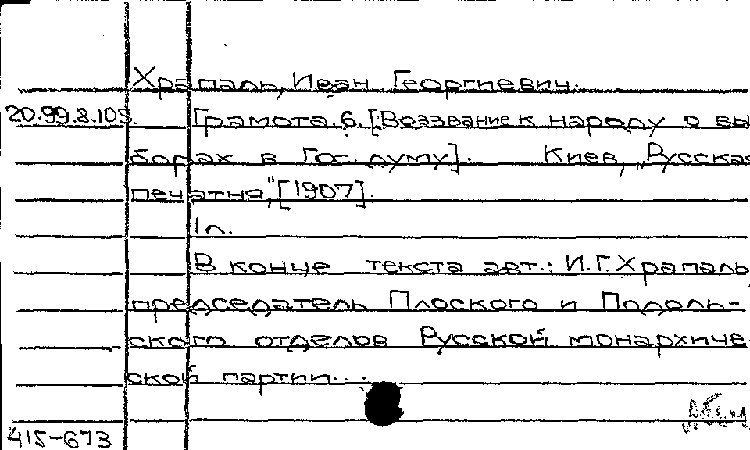 Храпаль, Иван Георгиевич.
20.99.8.103. Грамота 6. [Воззвание к народу о вы-
борах в Гос. думу]. Киев, "Русская
печатня", [1907].
1 л.
В конце текста авт.: И.Г. Храпаль,
председатель Плоского и Подоль-
ского отделов Русской монархиче
ской партии...
415-673